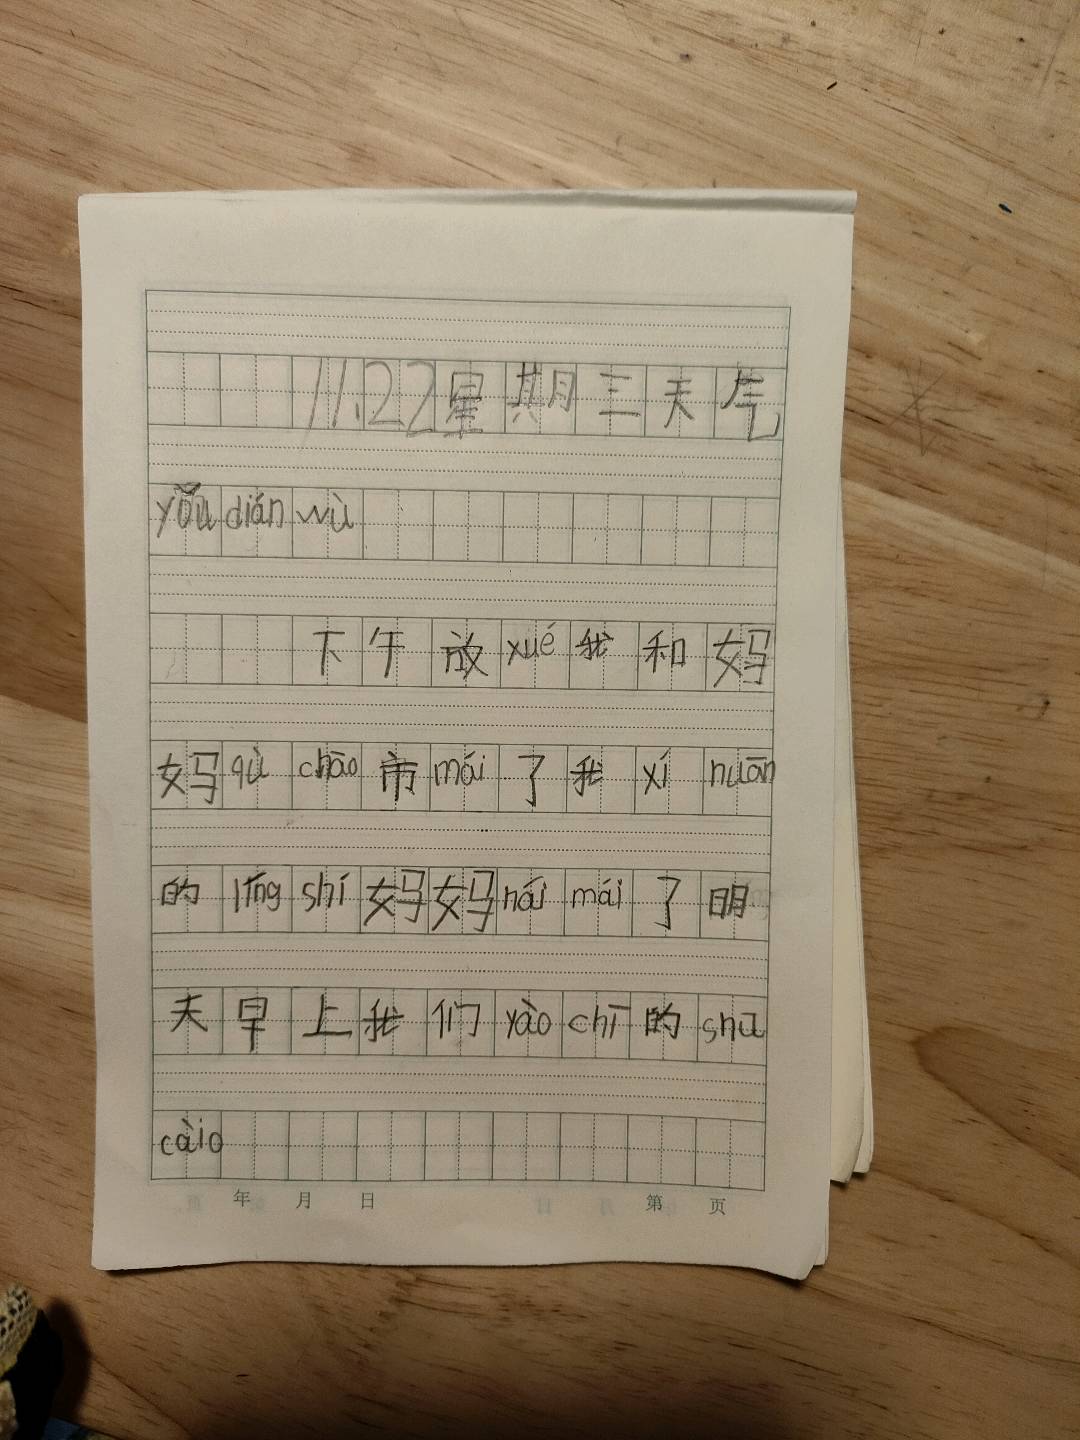 11.22星期三天气
yǒu dián wù
下午放xué我和妈
妈qù chāo市mái了我xí huān
的líng shí妈妈hái mái了明
天早上我们yào chī的shū
càio
年 月 日 第 页